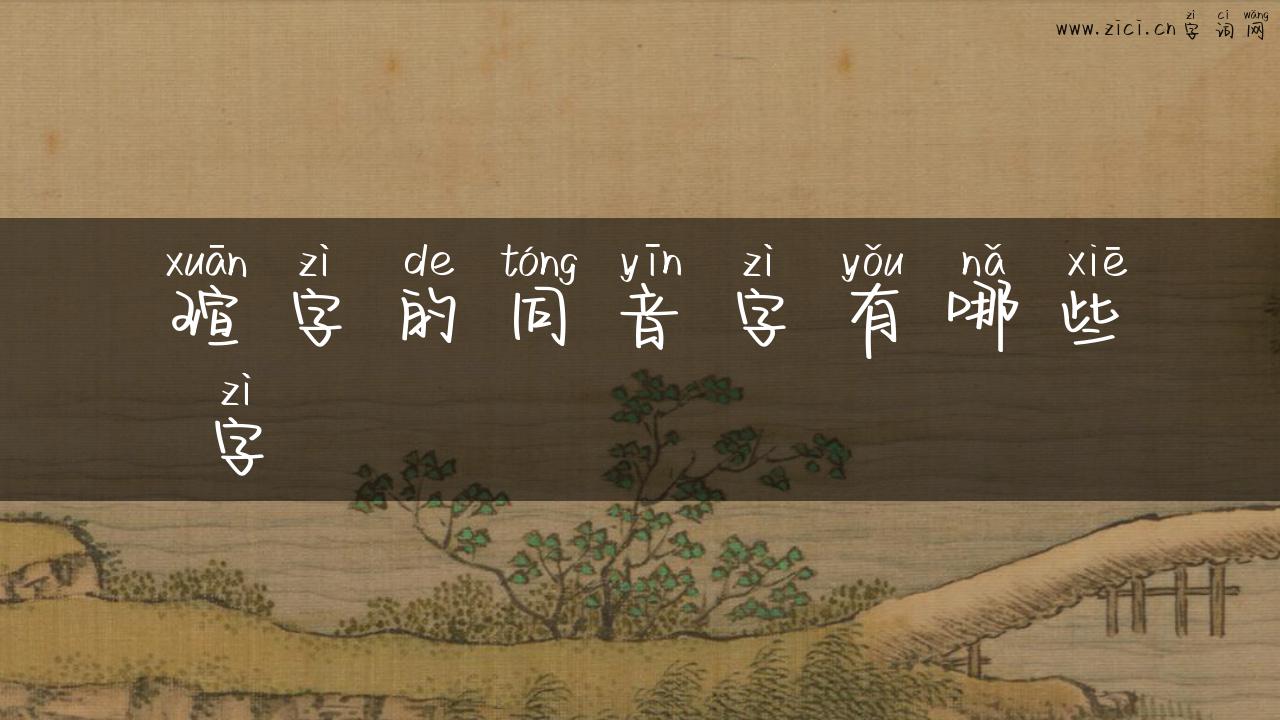 zì cí wǎng
www.zici.cn 字 词 网
xuān zì de tóng yīn zì yǒu nǎ xiē
瑄 字 的 同 音 字 有 哪 些
zì
字